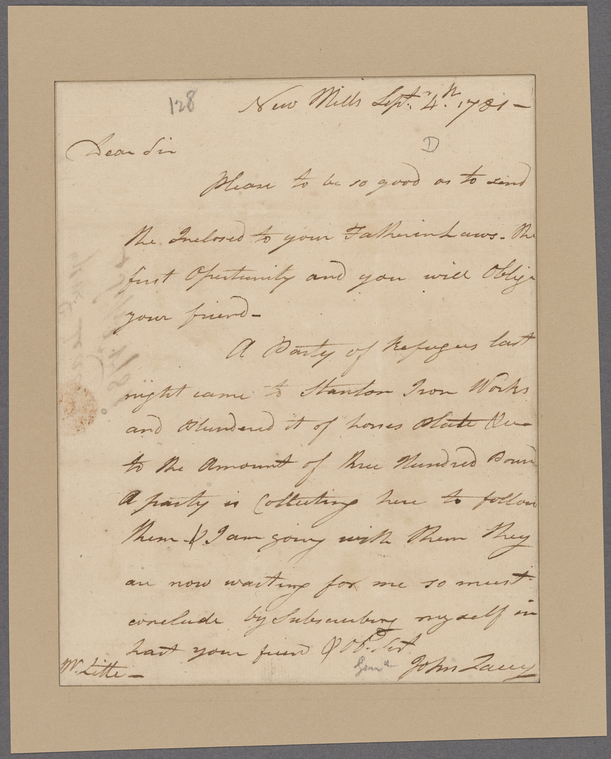 128
New Mills Septr. 4th. 1781 —
D
Dear Sir
Please to be so good as to send
the Inclosed to your Fatherin Laws. the
first Opertunity and you will Oblige
your friend —
A Party of Refugees last
night came to Stanton Iron Works
and Plundered it of horses Plate &c —
to the Amount of three Hundred Pound
A party is Collecting here to follow
them & I am going with them they
are now waiting for me so must
conclude by Subscribing myself in
hast your friend & Obt. Sert
Genl
John Lacey
Mr. Little —